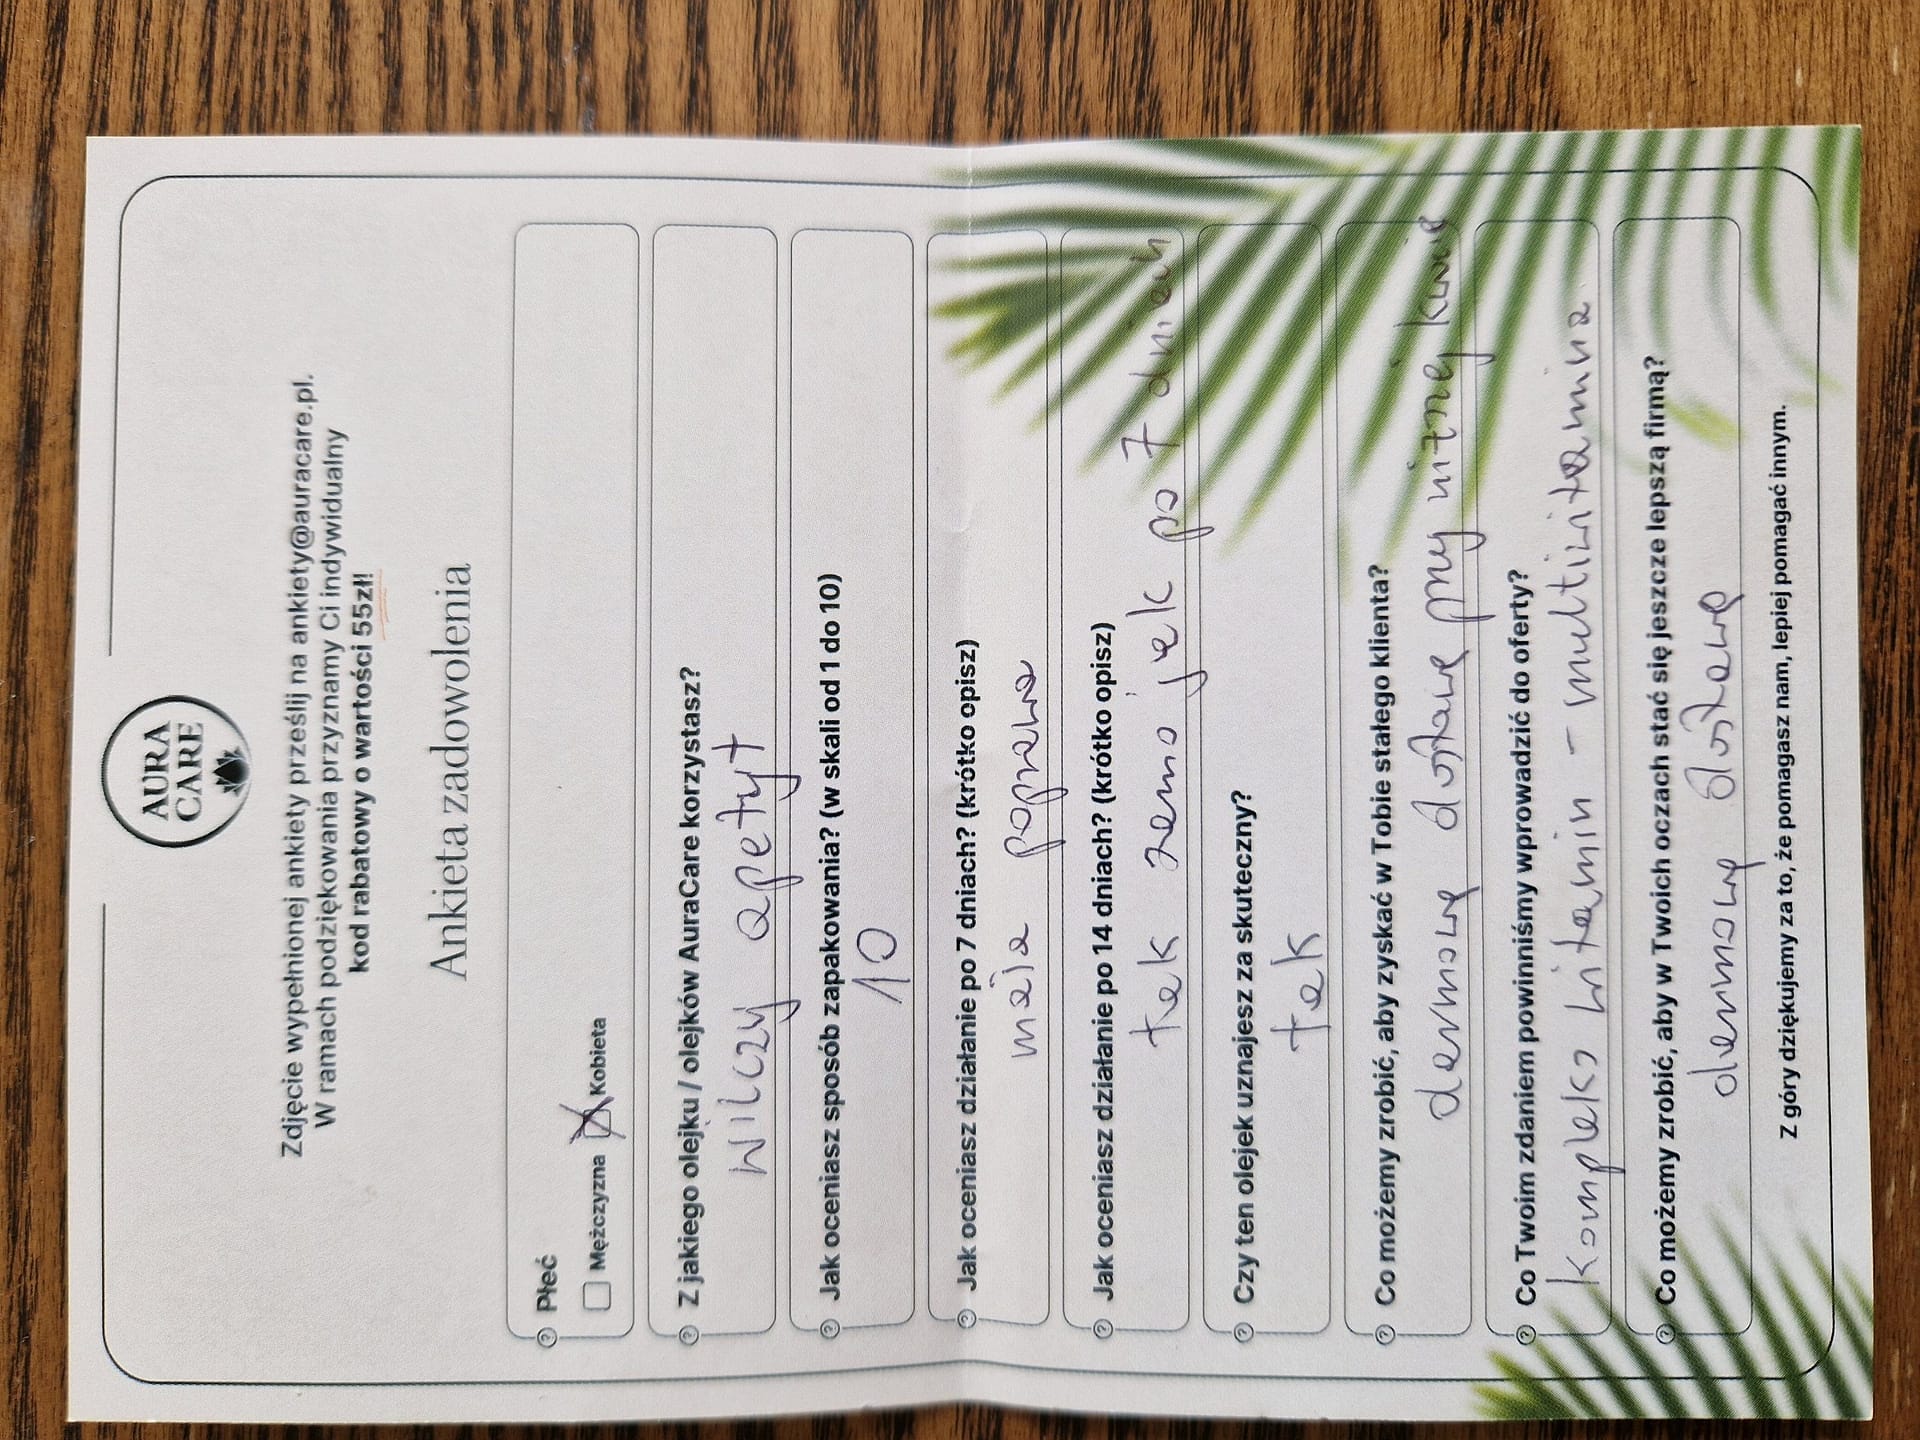 AURA
CARE
Zdjęcie wypełnionej ankiety prześlij na ankiety@auracare.pl.
W ramach podziękowania przyznamy Ci indywidualny
kod rabatowy o wartości 55zł!
Ankieta zadowolenia
Płeć
Mężczyzna Kobieta
Z jakiego olejku / olejków AuraCare korzystasz?
wilczy apetyt
Jak oceniasz sposób zapakowania? (w skali od 1 do 10)
10
Jak oceniasz działanie po 7 dniach? (krótko opisz)
poprawa
Jak oceniasz działanie po 14 dniach? (krótko opisz)
tak samo jak po 7 dniach
Czy ten olejek uznajesz za skuteczny?
tak
Co możemy zrobić, aby zyskać w Tobie stałego klienta?
darmową dostawę przy niższej kwocie
Co Twoim zdaniem powinniśmy wprowadzić do oferty?
kompleks witamin - multiwitamina
Co możemy zrobić, aby w Twoich oczach stać się jeszcze lepszą firmą?
darmową dostawę
Z góry dziękujemy za to, że pomagasz nam, lepiej pomagać innym.